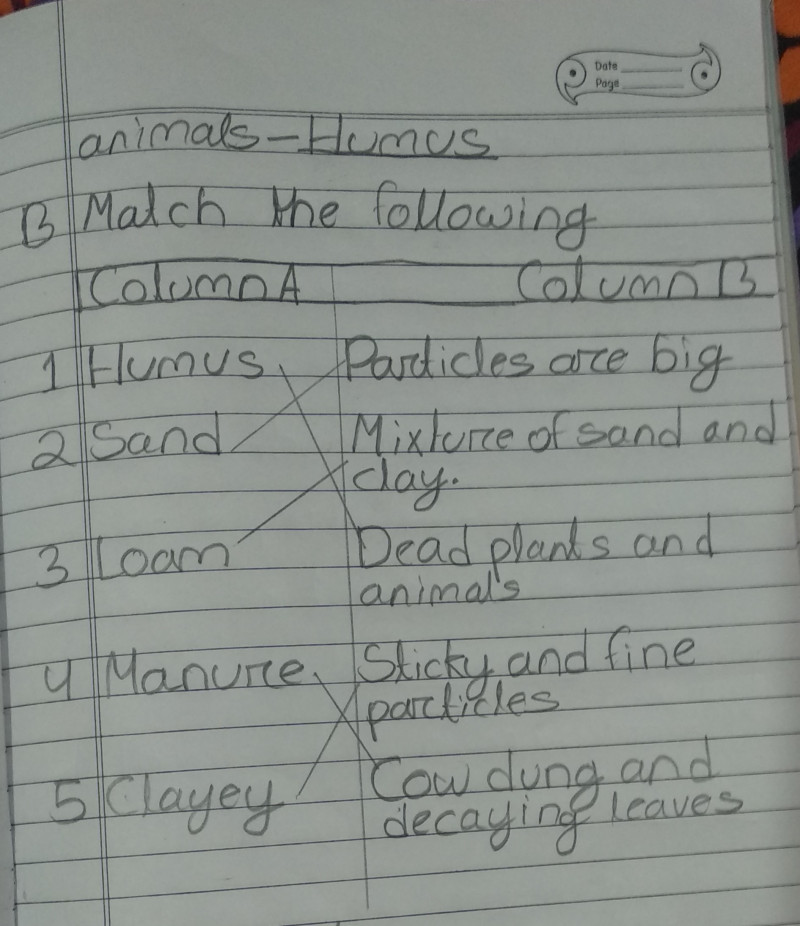 Date
Page
animals - Humus
B Match the following
Column A Column B
1 Humus Particles are big
2 Sand Mixture of sand and
clay.
3 Loam Dead plants and
animals
4 Manure Sticky and fine
particles
5 Clayey Cow dung and
decaying leaves